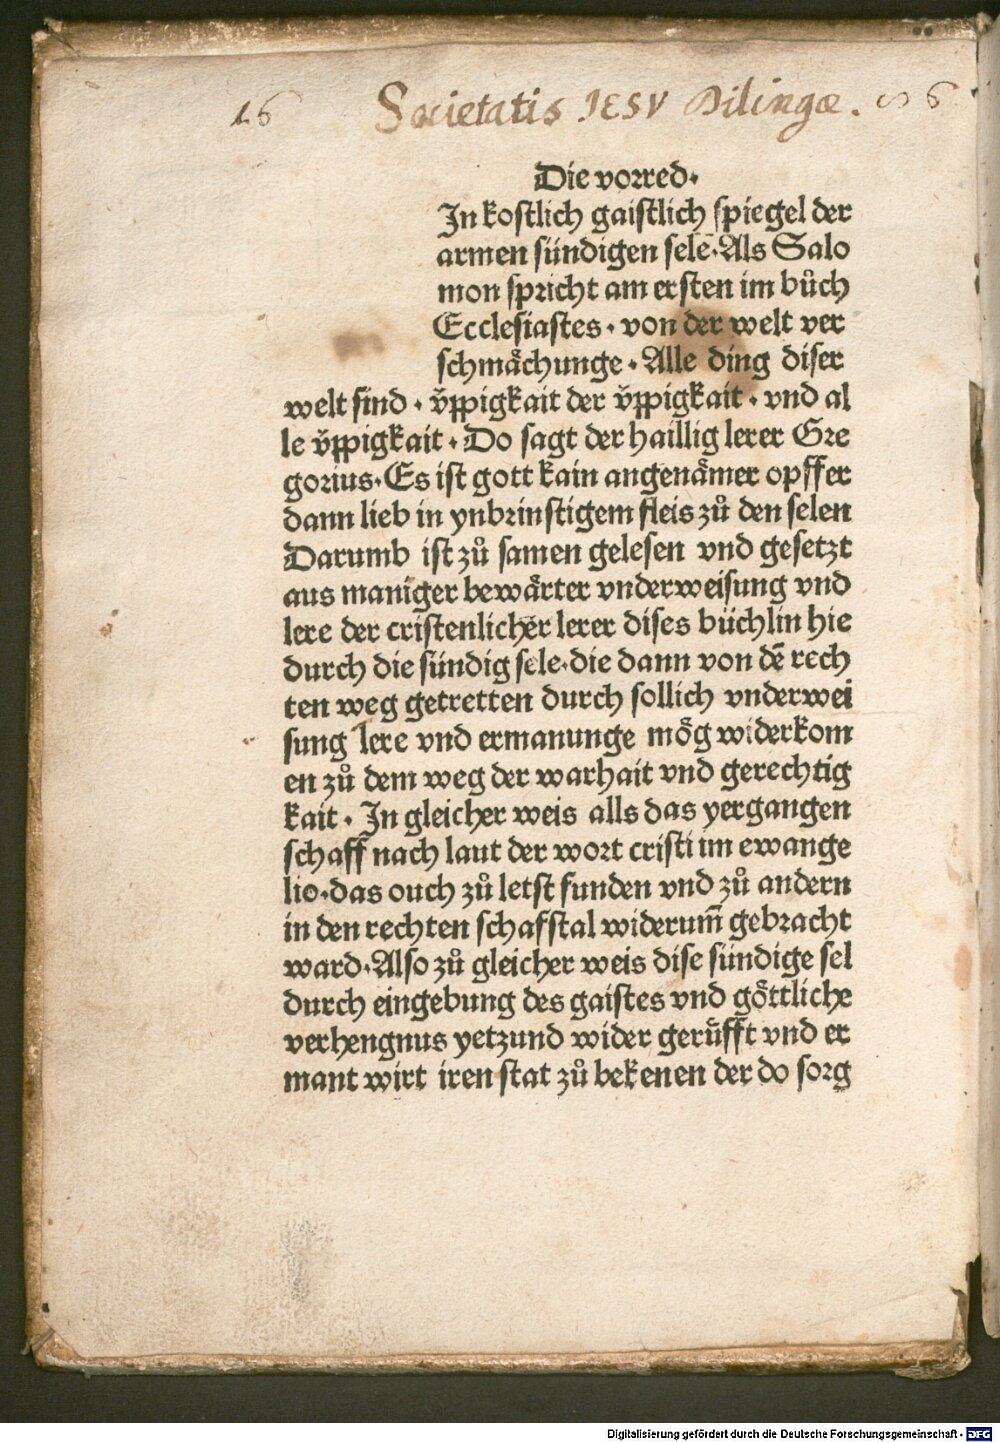 16 Societatis IESV Dilingæ. 86
Die vorred.
In kostlich gaistlich spiegel der
armen sündigen sele᷑.Als Salo
mon spricht am ersten im bůch
Ecclesiastes. von der welt ver
schmächunge. Alle ding diser
welt sind. v̈ppigkait der v̈ppigkait. vnd al
le v̈ppigkait. Do sagt der haillig lerer Gre
gorius.Es ist gott kain angenämer opffer
dann lieb in ynbrinstigem fleis zů den selen
Darumb ist zů samen gelesen vnd gesetzt
aus maniger bewärter vnderweisung vnd
lere der cristenlicher lerer dises büchlin hie
durch die sündig sele.die dann von dē rech
ten weg getretten durch sollich vnderwei
sung lere vnd ermanunge mög widerkom
en zů dem weg der warhait vnd gerechtig
kait. In gleicher weis alls das yergangen
schaff nach laut der wort cristi im ewange
lio.das ouch zů letst funden vnd zů andern
in den rechten schafstal widerum̄ gebracht
ward.Also zů gleicher weis dise sündige sel
durch eingebung des gaistes vnd göttliche
verhengnus yetzund wider gerüfft vnd er
mant wirt iren stat zů bekenen der do sorg
Digitalisierung gefördert durch die Deutsche Forschungsgemeinschaft - DFG